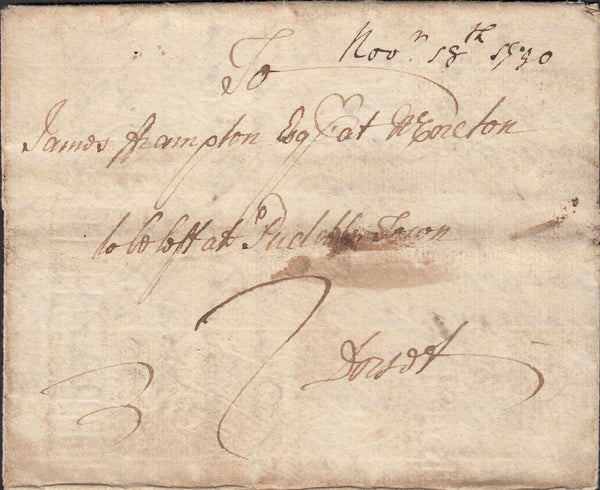 Novr. 18th 1730
To
James Frampton Esqr at Moreton
to be left at Puddle Town
Dorset